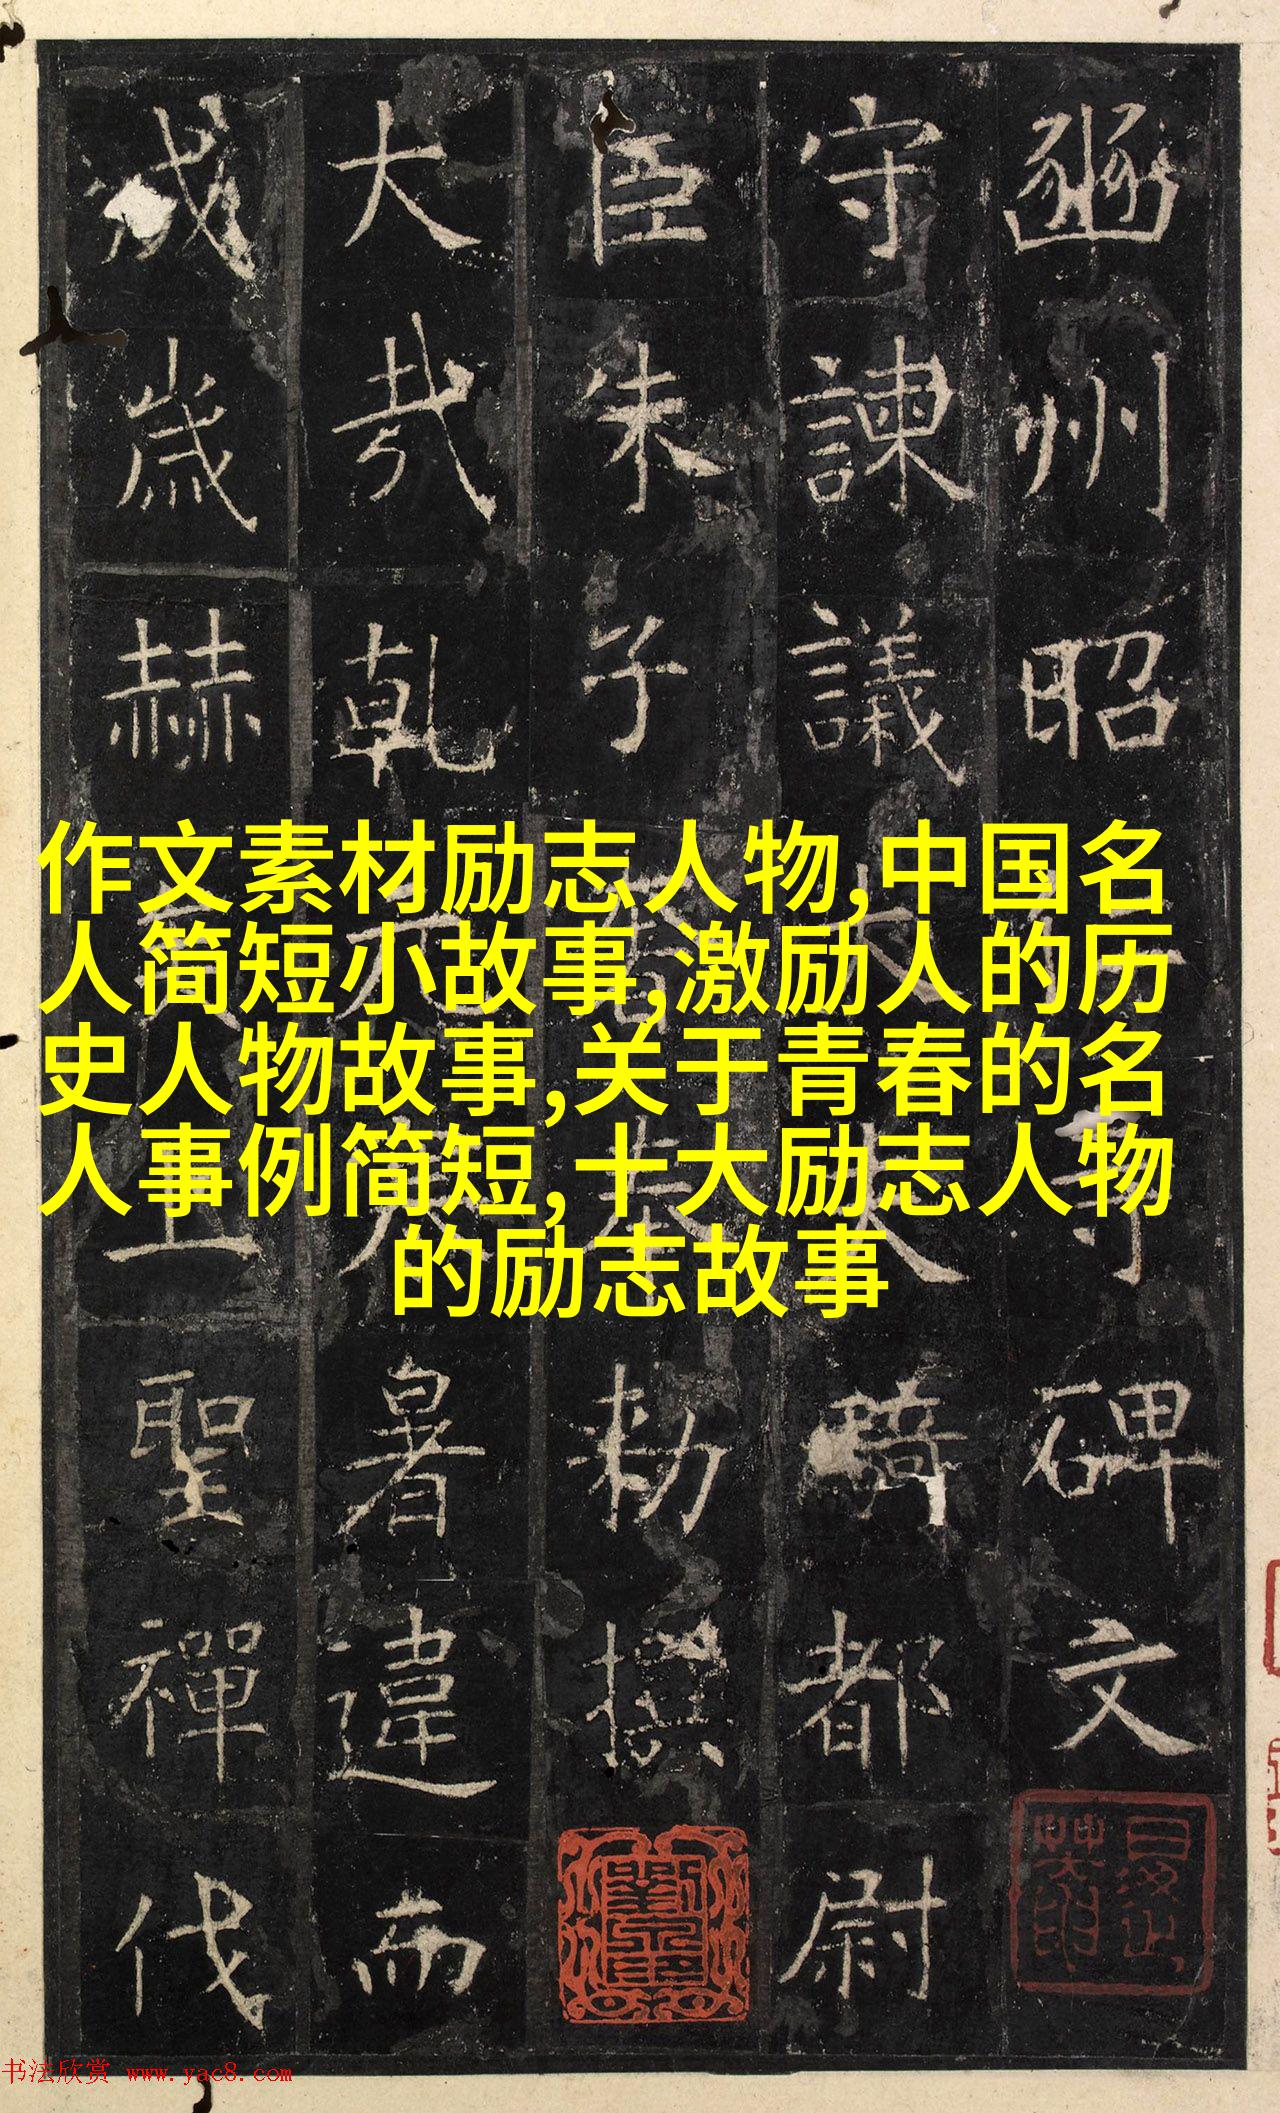 豳州昭仁寺碑文
守諫議大夫騎都尉
臣朱子奢奉勑撰
大哉乾元寒暑違而
成歲赫矣上聖禪代
作文素材励志人物,中国名
人简短小故事,激励人的历
史人物故事,关于青春的名
人事例简短,十大励志人物
的励志故事
书法欣赏 www.yac8.com